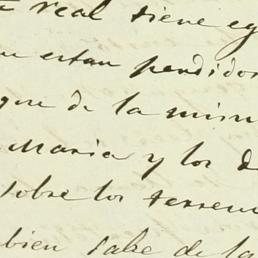 real tiene
estan pendido
que de la
Maria y los de
sobre los terren
bien sabe de la